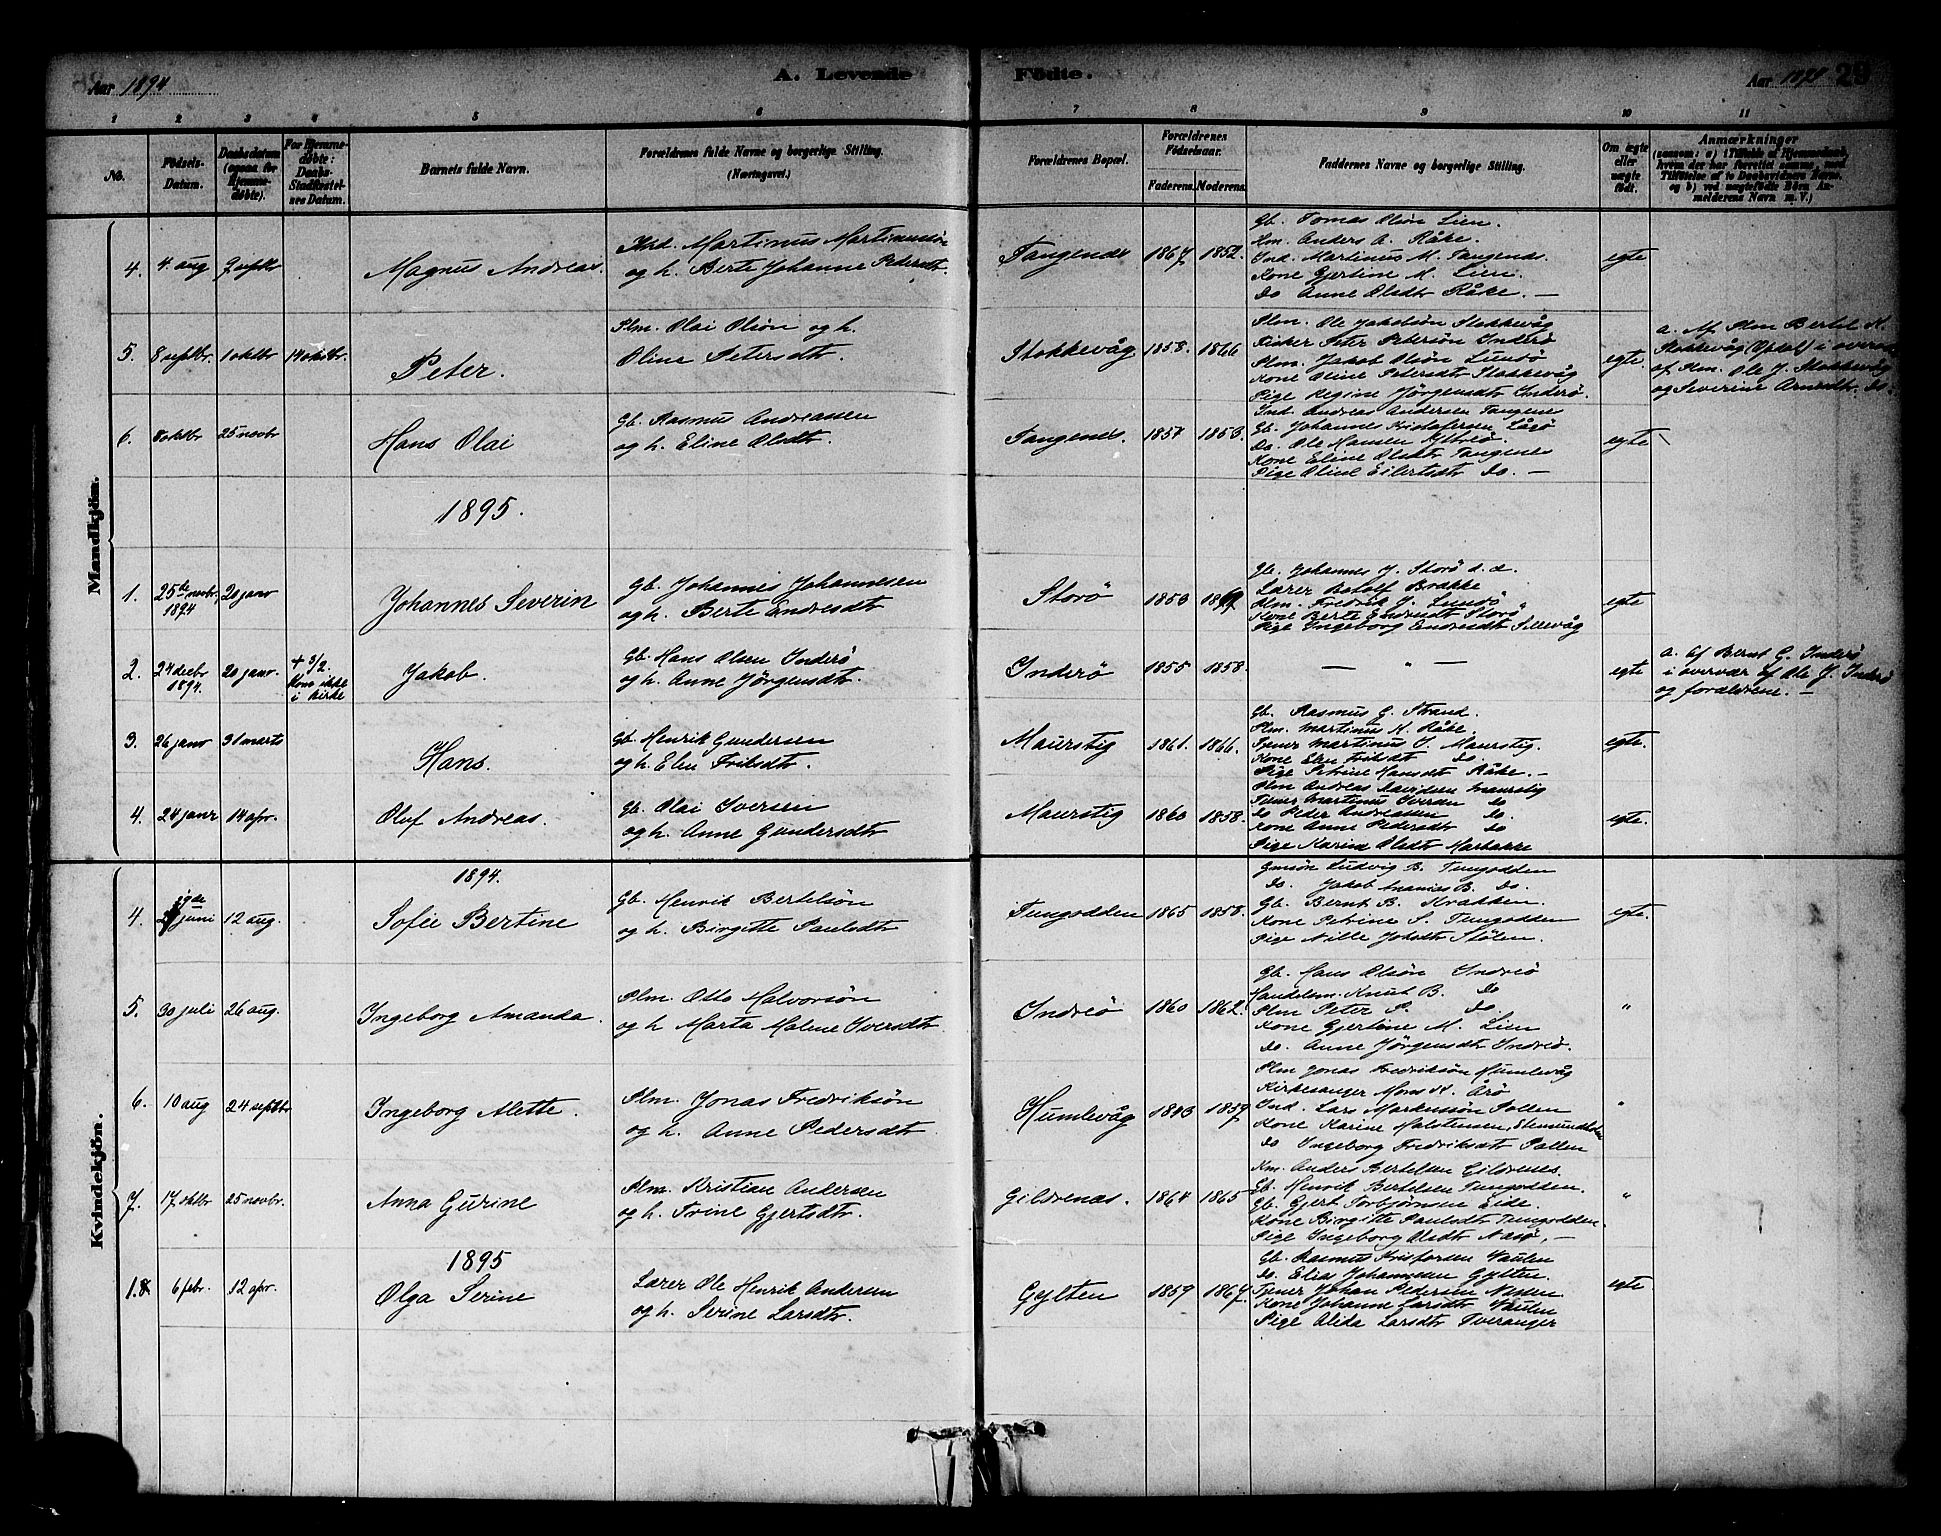 Aar 1894
A. Levende
Födte.
Aar 1894 29
1 2 3 4 5 6 7 8 9 10 11
No.
Födsels-
Datum.
Daabsdatum
(ogsaa for
Hjemme-
döbte).
For Hjemme-
döbte:
Daabs-
Stadfæstel-
ses Datum.
Barnets fulde Navn.
Forældrenes fulde Navne og borgerlige Stilling.
(Næringsvei.)
Forældrenes Bopæl.
Forældrenes
Födselsaar.
Faderens. Moderens.
Faddernes Navne og borgerlige Stilling.
Om ægte
eller
uægte
födt.
Anmærkninger
(saasom: a) i Tilfælde af Hjemmedaab,
hvem der har forrettet samme, med
Tilföielse af to Daabsvidners Navne,
og b) ved uægtefödte Börn An-
melderens Navn m. V.)
Mandkjön.
4. 4 aug 9 septbr Magnus Andreas.
Martinus Martinussön
og h. Berte Johanne Pedersdtr
Tangenes 1867 1852.
Gb. Tomas Olsön Lien.
Km. Anders A. Råke.
Ind. Martinus M. Tangenes
Kone Gjertine M. Lien.
Do Anne Olsdtr Råke. —
egte
5. 8 septbr. 1 oktbr 14 oktbr. Peter.
Plm. Olai Olsön og h.
Oline Petersdtr.
Stokkevåg 1858. 1866
Plm. Ole Jakobsön Stokkevåg
Fisker Peter Petersön Inderö
Plm. Jakob Olsön Lundö
Kone Oline Petersdtr Stokkevåg
Pige Regine Jörgensdtr Inderö.
egte.
a. Af Plm Bertel K.
Stokkevåg (Opsol) i overvær
af Plm. Ole J. Stokkevåg
og Severine Arnesdtr. do.
6. 8 oktbr 25 novbr Hans Olai
Gb. Rasmus Andreassen
og h. Eline Olsdtr.
Tangenes. 1857 1853.
Ind Andreas Andersen Tangene
Gb. Johannes Kristofersen Lågö
Do. Ole Hansen Yttreö.
Kone Eline Olsdtr Tangenes
Pige Oline Eilertsdtr Do. —
egte
1895.
1. 25de novbr, 1894 20 janv Johannes Severin
Gb. Johannes Johannesen
og h. Berte Endresdtr
Storö 1853
Gb. Johannes J. Storö s. æ.
Lærer Botolf Brække
Plm. Fredrik J. Lundö
Kone Berte Endresdtr Storö
Pige Ingeborg Endresdtr Sellevåg
egte
2. 24 decbr 1894. 20 janv. + 3/2. Kom ikke i kirke Jakob.
Gb. Hans Olsen Inderö
og h. Anne Jörgensdtr.
Inderö 1855 1858.
— " —
egte
a. af Bernt G. Inderö
i overvær af Ole J. Inderö
og forældrene. —
3. 26 janv 31 marts Hans.
Gb. Henrik Gundersen
og h. Elen Eriksdtr.
Maurstig 1861. 1866.
Gb. Rasmus G. Strand.
Plm. Martinus K. Råke.
Tjener Martinus I. Maurstig.
Kone Elen Eriksdtr Do.
Pige Petrine Hansdtr Råke. —
egte.
4. 24 janr 14 apr. Oluf Andreas.
Gb. Olai Iversen
og h. Anne Gundersdtr
Maurstig 1860 1858.
Plm Andreas Davidsen Maurstig
Tjener Martinus Iversen do
Do Peder Andreassen Do.
Kone Anne Pedersdtr Do
Pige Karine Olsdtr Marbakke
egte.
Kvindekjön.
1894.
4. juni 12 aug. Sofie Bertine
Gb. Henrik Bertelsön
og h. Birgitte Paulsdtr
Tungodden 1865 1858.
Ludvig B. Tungodden
Do. Jakob Ananias B. Do.
Gb. Bernt B. Krakken.
Kone Petrine S. Tungodden
Pige Nille Johsdtr Stölen.
egte.
5. 30 juli 26 aug. Ingeborg Amanda.
Plm. Otto Halvorsön
og h Marta Malene Iversdtr
Indreö 1860 1862.
Gb. Hans Olsön Indreö
Handelsm. Knut B. Do
Plm Peter P. Do
Kone Gjertine M. Lien
Do. Anne Jörgensdtr Indreö.
"
6. 10 aug 24 septbr Ingeborg Alette.
Plm. Jonas Fredriksön
og h. Anne Pedersdtr
Humlevåg 1859
Plm Jonas Fredriksön Humlevåg
Kirkesanger Mons H. Årö
Ind. Lars Markussön Pollen
Kone Karine Halstensen,
Do Ingeborg Fredriksdtr Pollen
"
7. 17 oktbr 25 novbr. Anna Gurine
Plm. Kristian Andersen
og h. Trine Gjertsdtr.
Gildrenæs. 1864 1865
Km. Anders Bertelsen Gildrenes.
Gb. Henrik Bertelsen Tungodden.
Gb. Gjert Torbjörnsen Eide.
Kone Birgitte Paulsdtr Tungodden.
Pige Ingeborg Olsdtr Nasö. —
"
1895
1. 6 febr. 12 apr. Olga Serine
Lærer Ole Henrik Andersen
og h. Serine Larsdtr.
Gylten 1859 1867.
Gb. Rasmus Kristofersen Vaulen
Do. Elias Johannesen Gylten.
Tjener Johan Pedersen Nesen
Kone Johanne Larsdtr Vaulen
Pige Alida Larsdtr Tveranger
egte